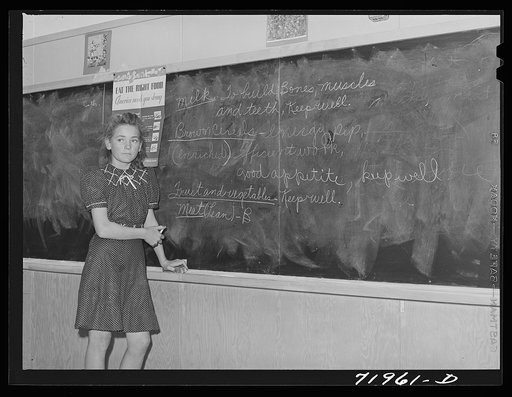 EAT THE RIGHT FOOD
America needs you strong
Milk, To build Bones, muscles
and teeth, Keep well.
Brown Cereals - energy, Pep,
(enriched)
good appetite, keep well
Fruit and vegetables - Keep well.
Meet (Lean) - B
71961-D